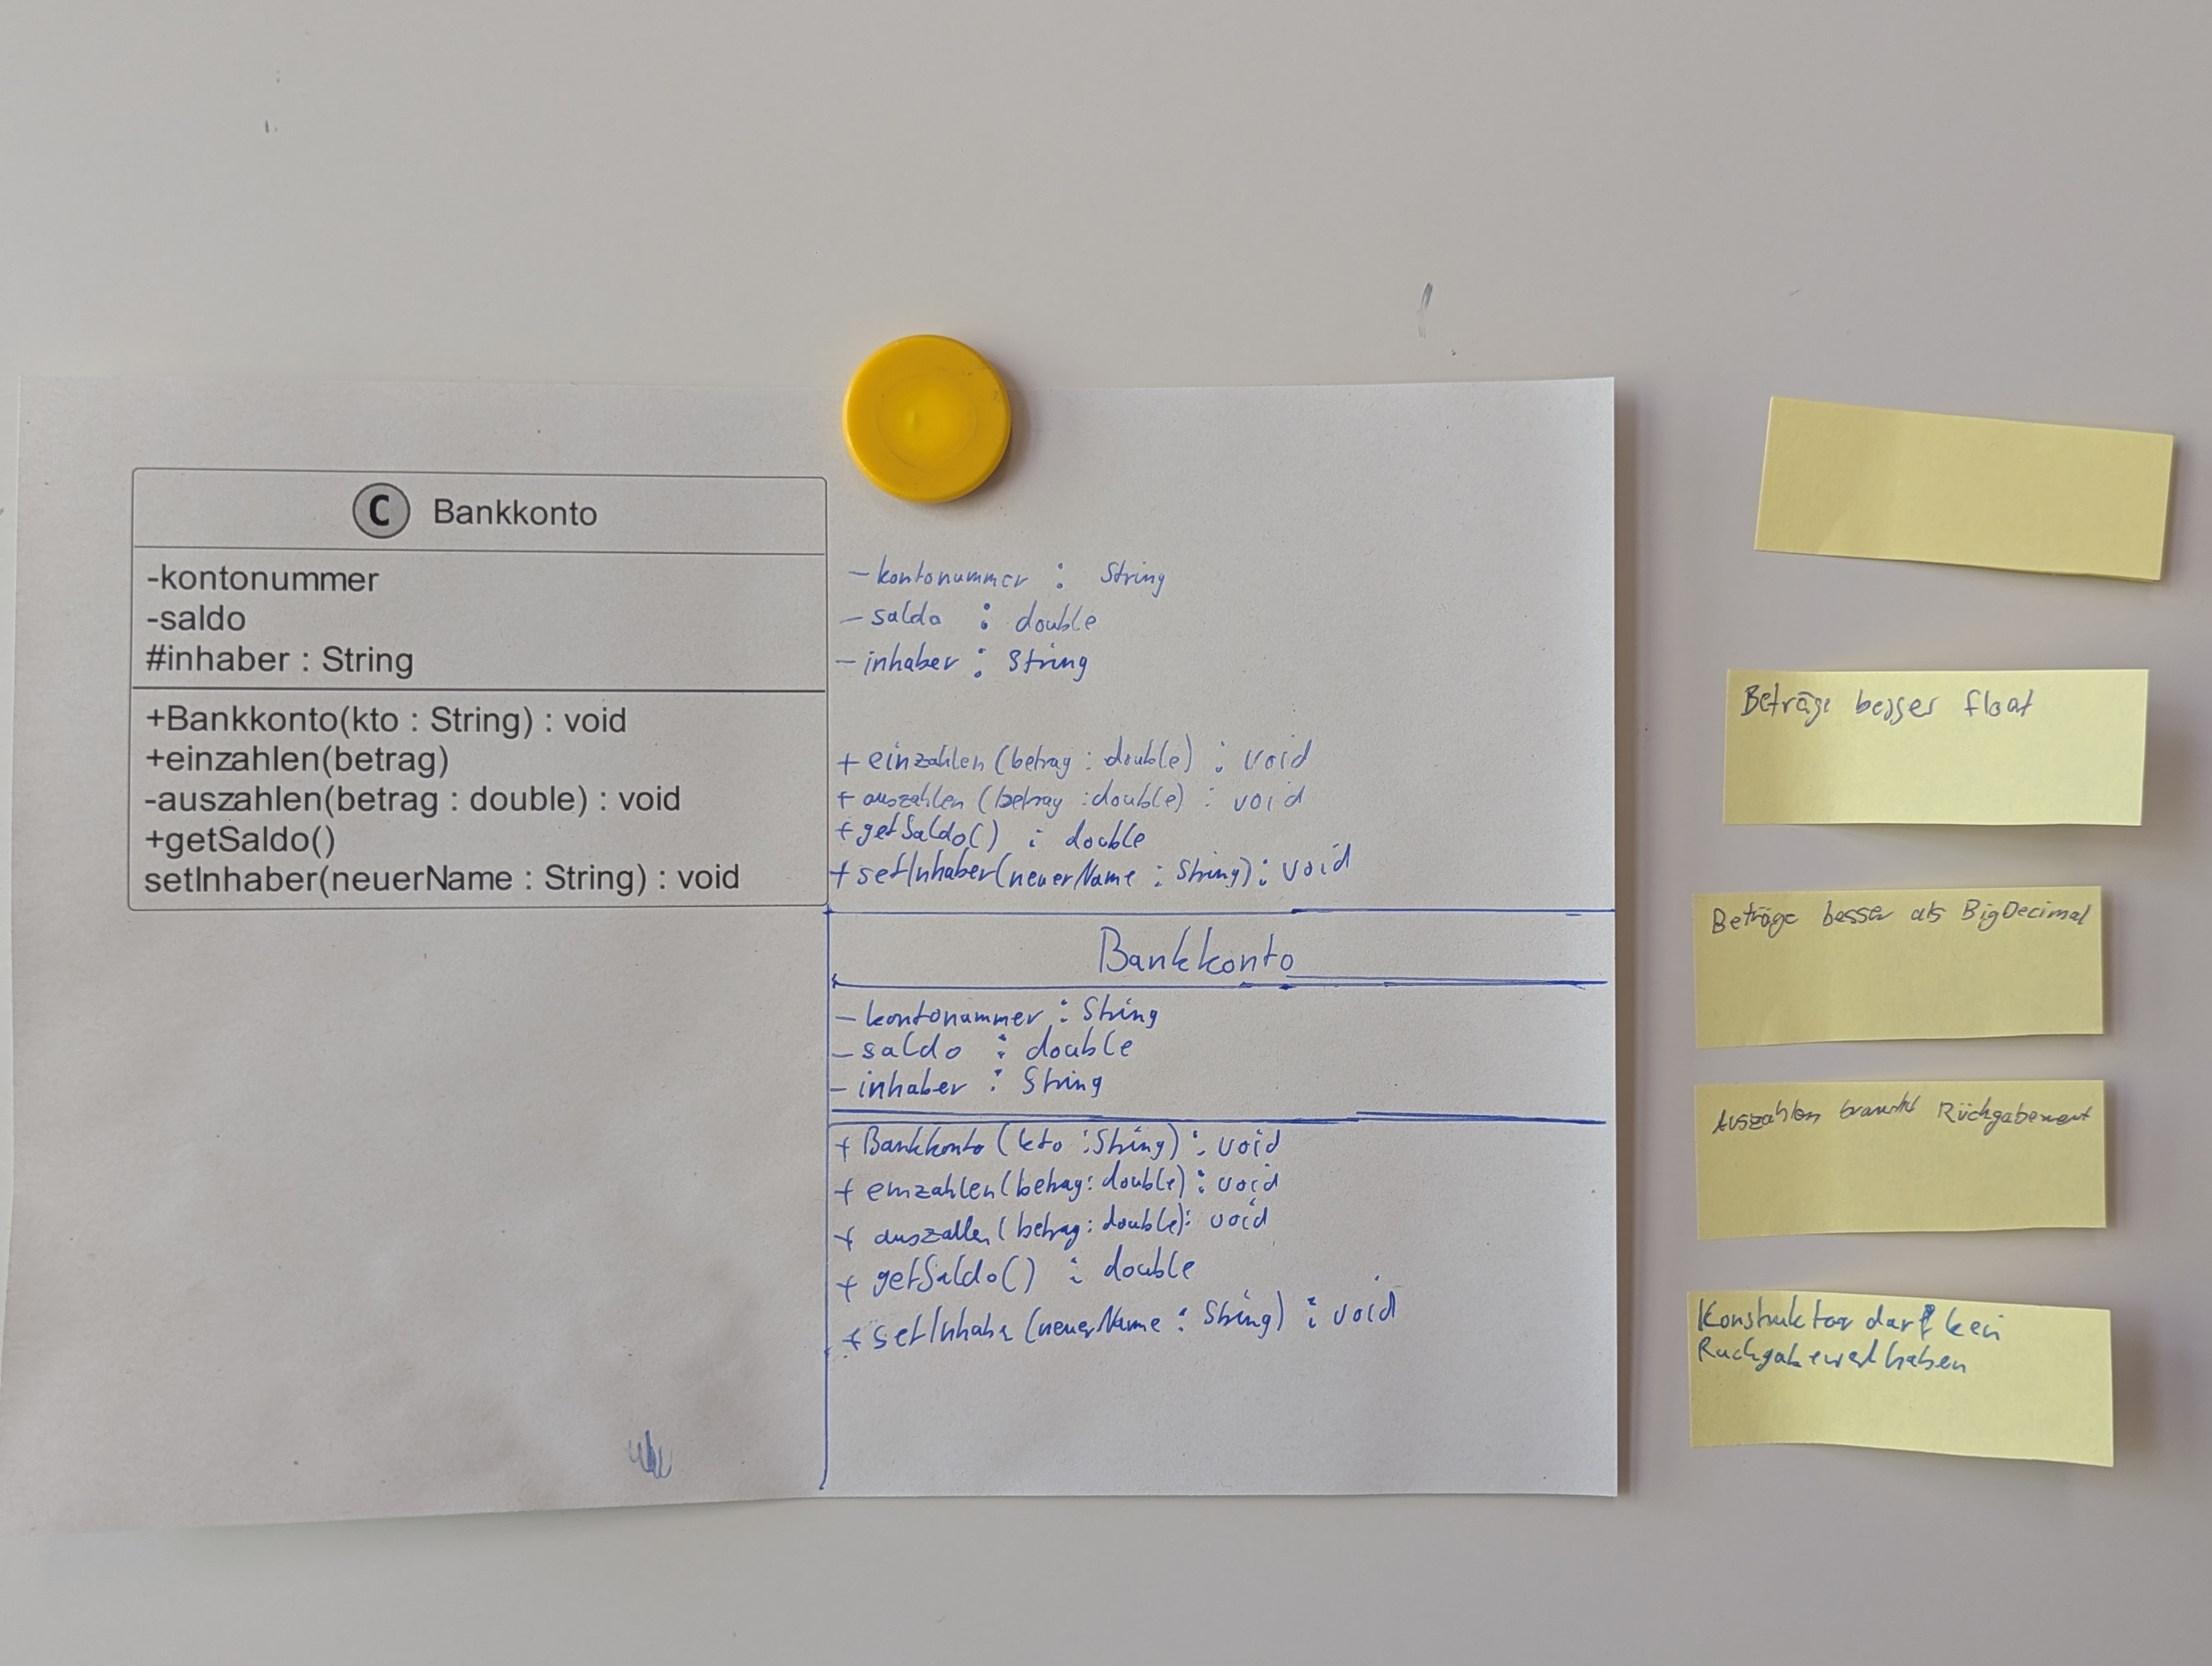 C Bankkonto
-kontonummer
-saldo
#inhaber : String
+Bankkonto(kto : String) : void
+einzahlen(betrag)
-auszahlen(betrag : double) : void
+getSaldo()
setInhaber(neuerName : String) : void
- kontonummer : String
- saldo : double
- inhaber : String
+ einzahlen (betrag : double) : void
+ auszahlen (betrag : double) : void
+ getSaldo() : double
+ setInhaber(neuerName : String) : void
Bankkonto
- kontonummer : String
- saldo : double
- inhaber : String
+ Bankkonto (kto : String) : void
+ einzahlen (betrag : double) : void
+ auszallen (betrag : double) : void
+ getSaldo() : double
+ setInhaber (neuerName : String) : void
Beträge besser float
Beträge besser als BigDecimal
Auszahlen braucht Rückgabewert
Konstruktor darf kein
Ruckgabewert haben